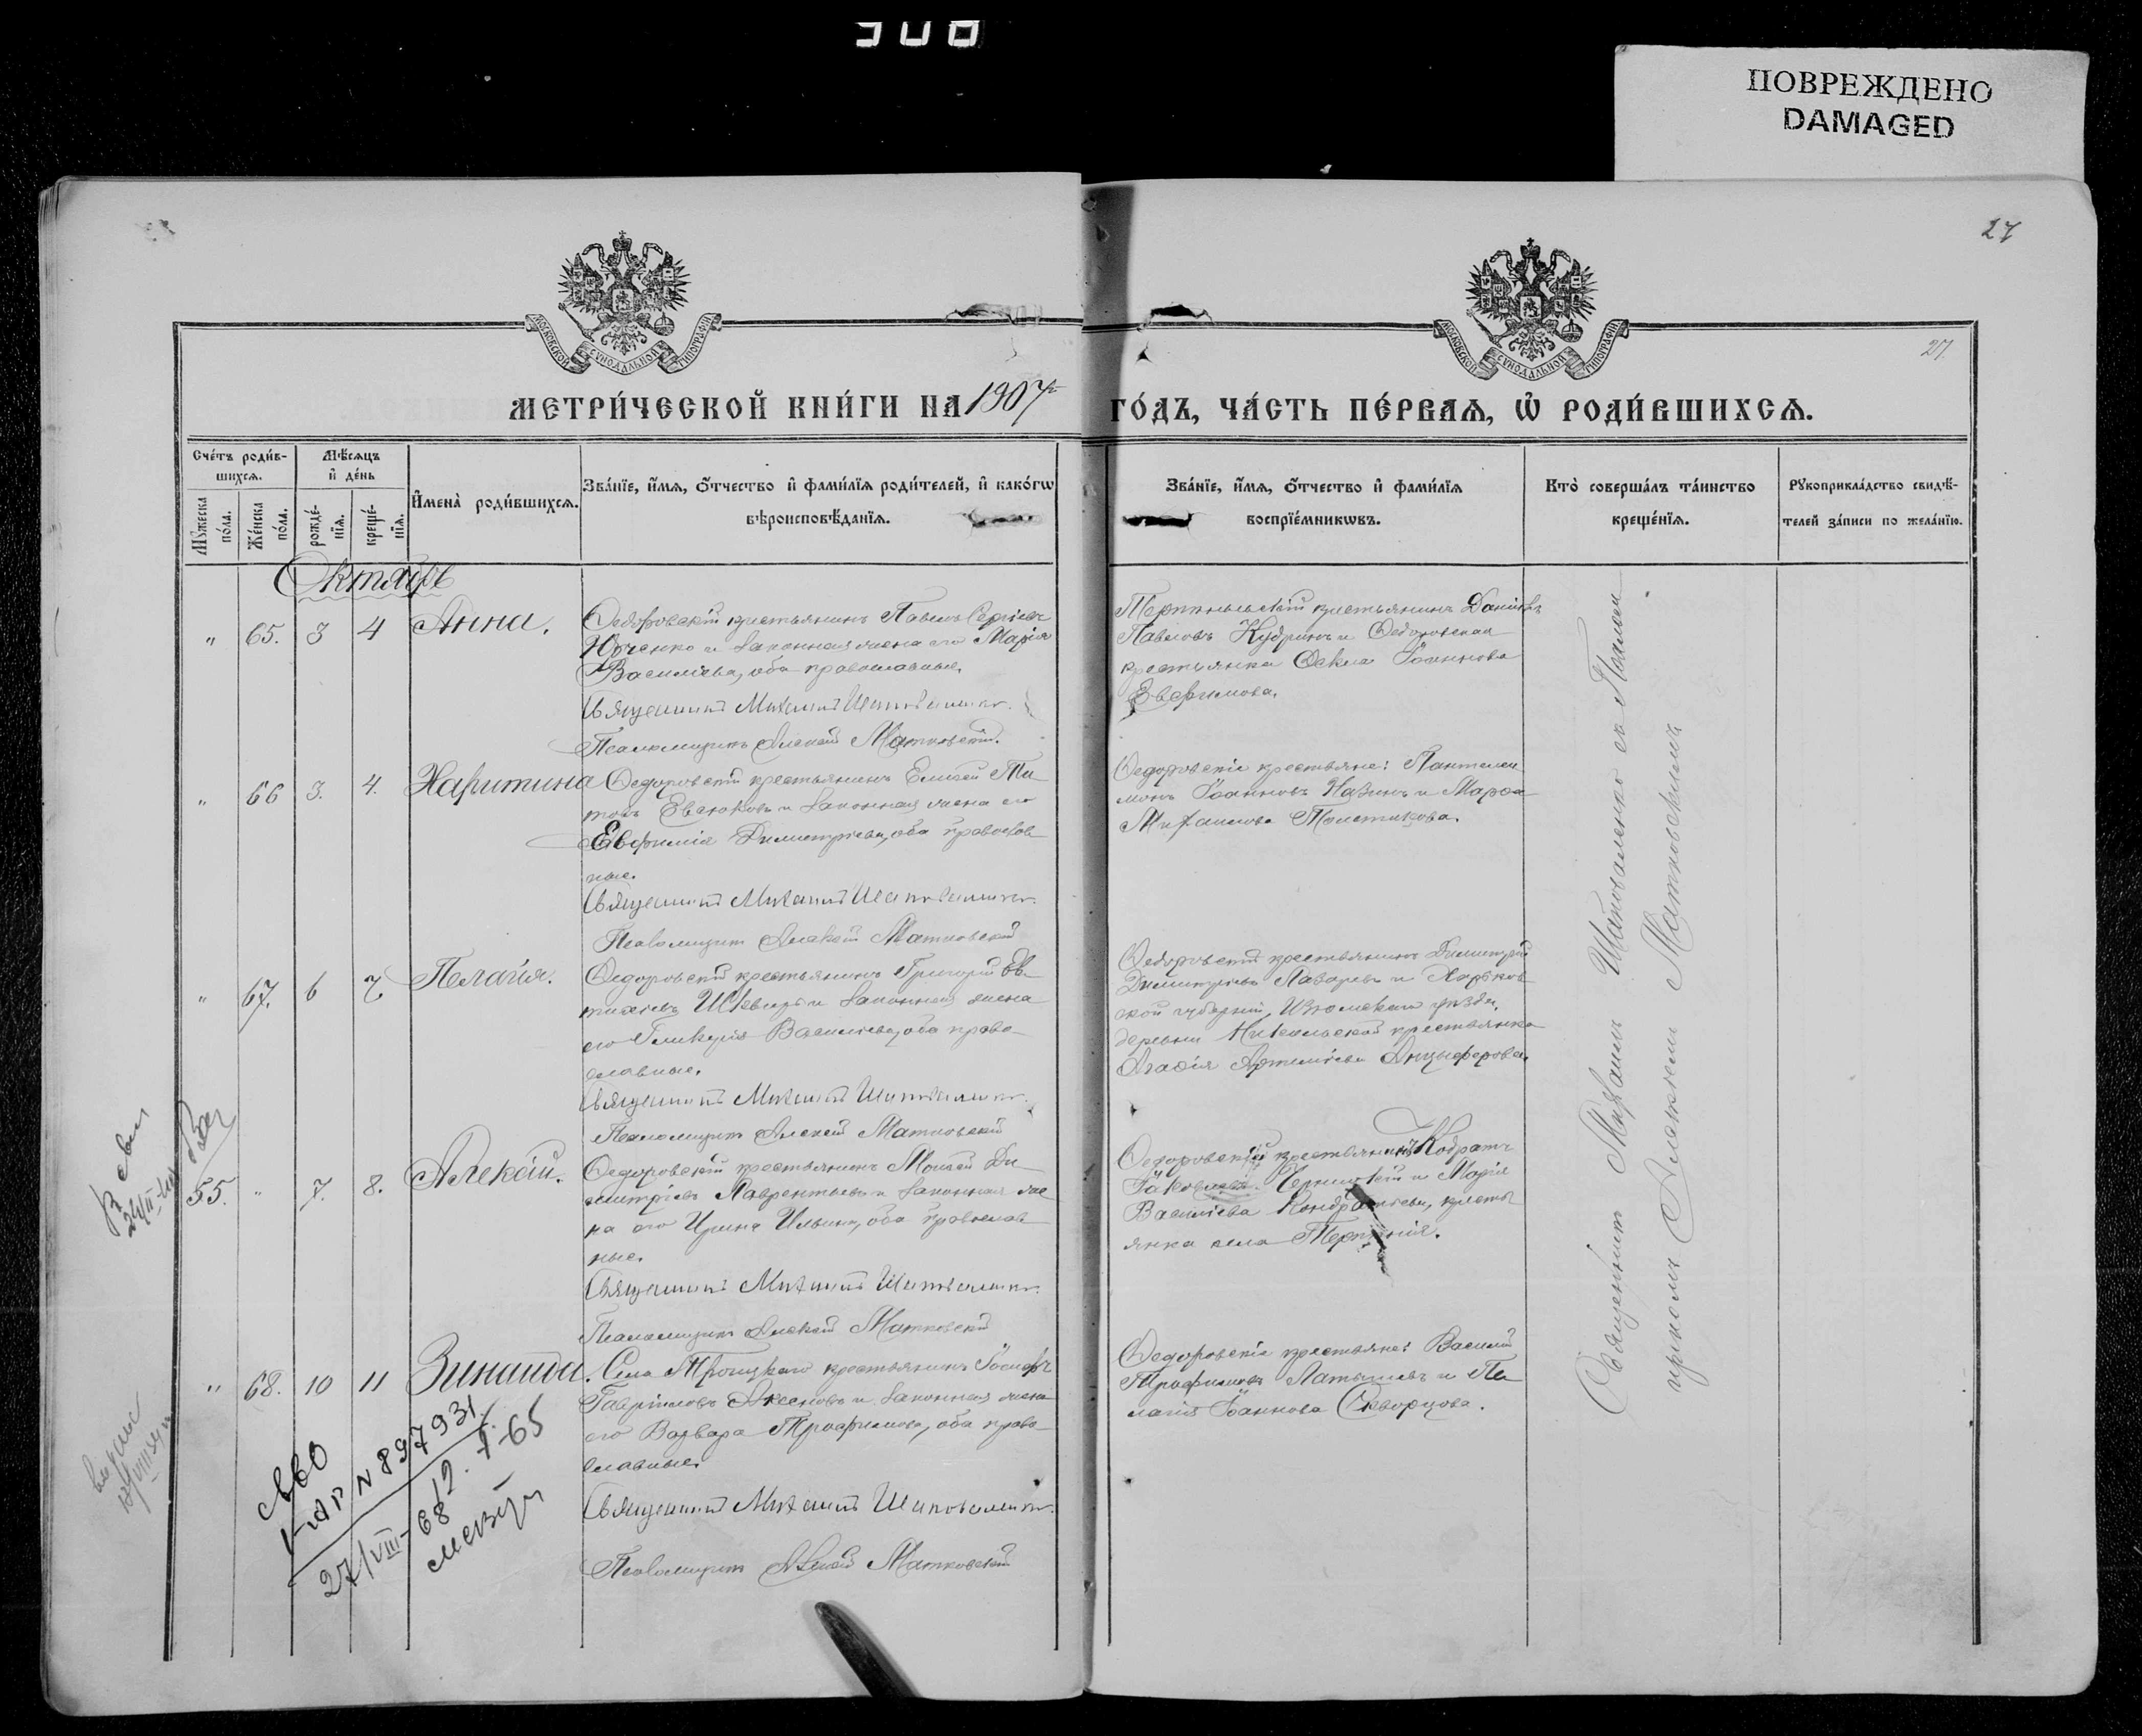 308
ПОВРЕЖДЕНО
DAMAGED
27
МОСКОВСКОЙ СѴНОДАЛЬНОЙ ТИПОГРАФІИ
МОСКОВСКОЙ СѴНОДАЛЬНОЙ ТИПОГРАФІИ
27.
МЕТРИ́ЧЕСКОЙ КНИ́ГИ НА 1907 ГО́ДЪ, ЧА́СТЬ ПЕ́РВАѦ, Ѡ҆ РОДИ́ВШИХСѦ.
Сче́тъ роди́в-
шихсѧ.
Мѣ́сѧцъ
и҆ де́нь
Мꙋ́жеска
по́ла.
Же́нска
по́ла.
рожде́-
нїѧ.
креще́-
нїѧ.
И҆мена̀ роди́вшихсѧ.
Зва́нїе, и҆́мѧ, ѻ҆́тчество и҆ фами́лїѧ роди́телей, и҆ како́гѡ
вѣроисповѣ́данїѧ.
Зва́нїе, и҆́мѧ, ѻ҆́тчество и҆ фами́лїѧ
воспрїе́мникѡвъ.
Кто̀ соверша́лъ та́инство
креще́нїѧ.
Рꙋкоприкла́дство свидѣ́-
телей за́писи по жела́нїю.
Октябрь
" 65. 3 4 Анна.
Ѳедоровскій крестьянинъ Павелъ Сергіевъ
Юрченко и законная жена его Марія
Васильева, оба православные.
Священникъ Михаилъ Шаповаленко.
Псаломщикъ Алексѣй Матковскій.
крестьянинъ Даніилъ
Павловъ Кудринъ и Ѳедоровская
крестьянка Ѳекла Іоаннова
Евфимова.
" 66 3. 4. Харитина
Ѳедоровскій крестьянинъ Елисей Ти
товъ Евсюковъ и законная жена его
Евфимія Димитріева, оба православ
ные.
Священникъ Михаилъ Шаповаленко.
Псаломщикъ Алексѣй Матковскій
Ѳедоровскіе крестьяне: Пантелеи
монъ Іоанновъ Назинъ и Марѳа
Михаилова Толстикова.
" 67. 6 7 Пелагія.
Ѳедоровскій крестьянинъ Григорій Ев
тихіевъ и законная жена
его Гликерія Васильева, оба право
славные.
Священникъ Михаилъ Шаповаленко.
Псаломщикъ Алексѣй Матковскій
Ѳедоровскій крестьянинъ Димитрій
Димитріевъ Лазаревъ и Харьков
ской губерніи, Изюмскаго уѣзда,
деревни Никольской крестьянка
Агаѳія Артеміева Анцыферова.
55. " 7. 8. Алексѣй.
Ѳедоровскій крестьянинъ Моисей Ди
митріевъ Лаврентьевъ и законная же
на его Ирина Ильина, оба православ
ные.
Священникъ Михаилъ Шаповаленко.
Псаломщикъ Алексѣй Матковскій
Ѳедоровскій крестьянинъ Кодратъ
Іаковлевъ Черницкій и Марія
Васильева Кондратьева, кресть
янка села Терпѣнія.
" 68. 10 11 Зинаида.
Села Троицкаго крестьянинъ Іосифъ
Гавріиловъ Аксеновъ и законная жена
его Варвара Трофимова, оба право
славные.
Священникъ Михаилъ Шаповаленко.
Псаломщикъ Алексѣй Матковскій
Ѳедоровскіе крестьяне: Василій
Трофимовъ Латышевъ и Пе
лагія Іоаннова Скворцова.
Священникъ Михаилъ Шаповаленко съ Псалом
щикомъ Алексѣемъ Матковскимъ
N 897931
12. I-65
27/VIII-68